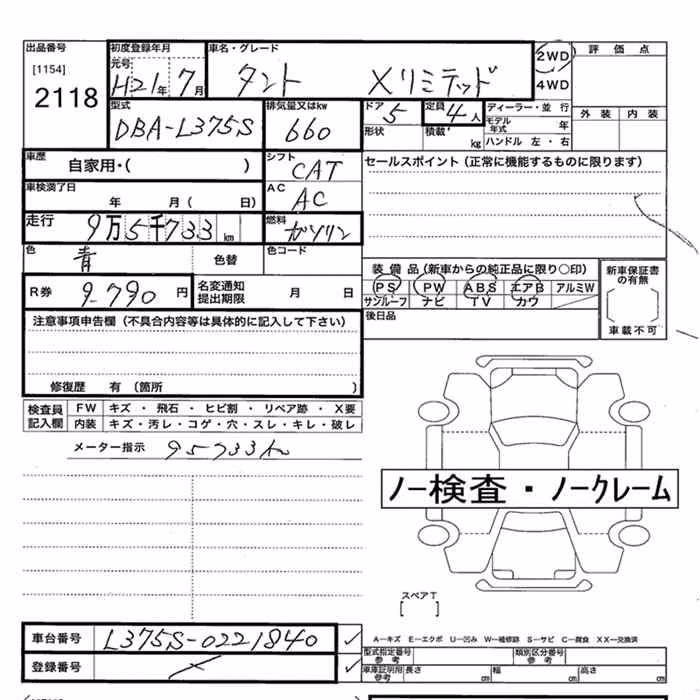 出品番号 初度登録年月 車名・グレード 2WD 評価点
[1154] 元号 H21年 7月 タント Xリミテッド 4WD
2118 型式 排気量又はkw ドア 5 定員 4人 ディーラー・並行 外装 内装
DBA-L375S 660 形状 積載 kg モデル年式 年
ハンドル 左・右
車歴 自家用・( ) シフト CAT セールスポイント(正常に機能するものに限ります)
車検満了日 年 月( 日) AC AC
走行 9万5千733km 燃料 ガソリン
色 青 色替 色コード
装備品(新車からの純正品に限り○印) 新車保証書の有無
R券 9790円 名変通知提出期限 月 日 PS PW ABS エアB アルミW
サンルーフ ナビ TV カワ
注意事項申告欄(不具合内容等は具体的に記入して下さい) 後日品 車載不可
修復歴 有(箇所 )
検査員記入欄 FW キズ・飛石・ヒビ割・リペア跡・X要
内装 キズ・汚レ・コゲ・穴・スレ・キレ・破レ
メーター指示 95733km
ノー検査・ノークレーム
スペアT
[ ]
車台番号 L375S-0221840 A-キズ E-エクボ U-凹み W-補修跡 S-サビ C-腐食 XX-交換済
登録番号 型式指定番号 参考 類別区分番号 参考
車庫証明用参考 長さ cm 幅 cm 高さ cm